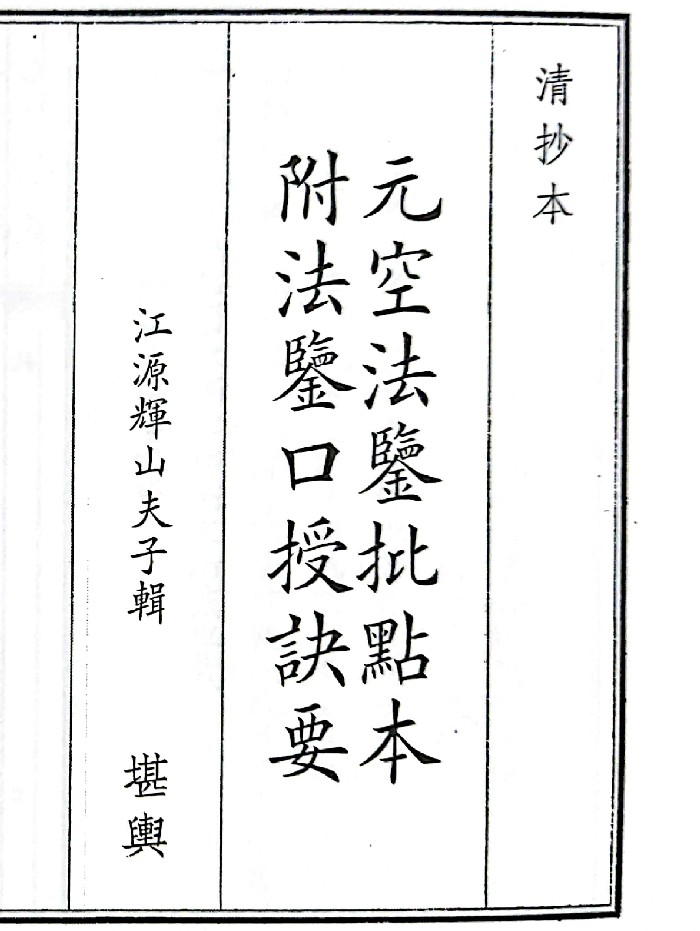 清抄本
元空法鑒批點本
附法鑒口授訣要
江源輝山夫子輯 堪輿